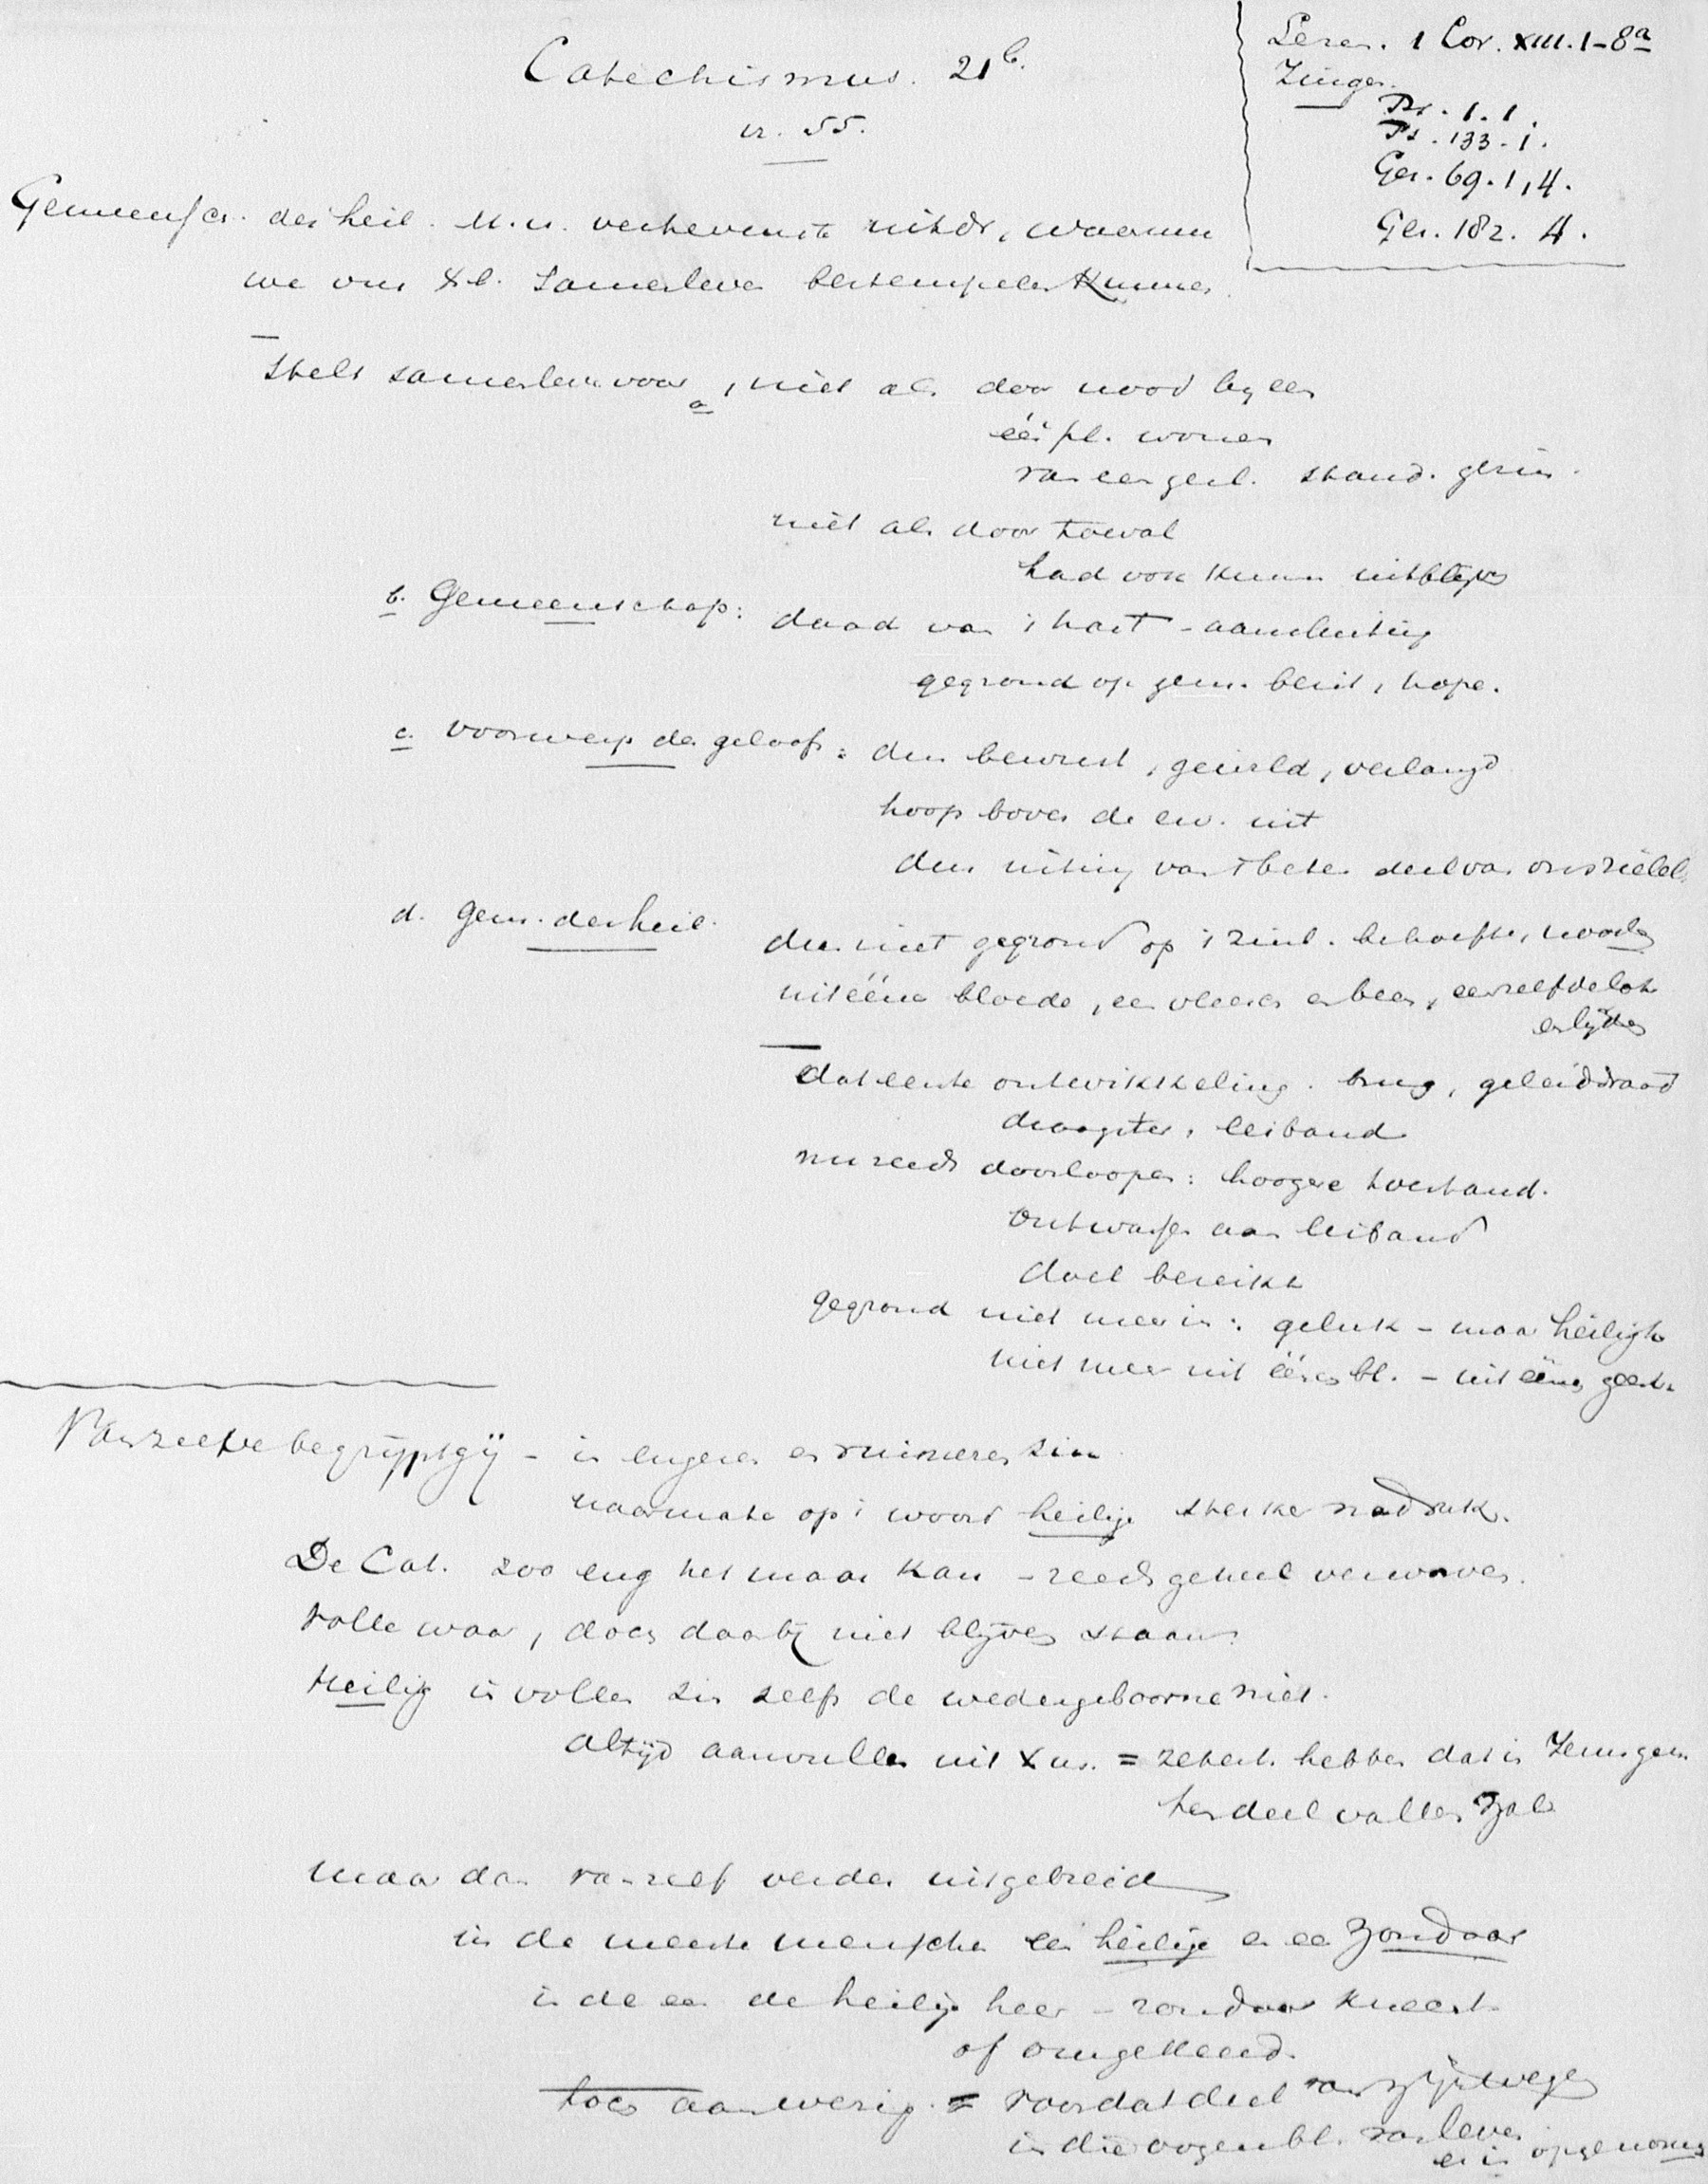 Catechismus. 21b.
vr. 55.
Lezen. 1 Cor. XIII. 1-8a
Zingen.
Ps. 1.1.
Ps. 133.1.
Gez. 69.1,4.
Gez. 182. 4.
Gemeensch. der heil. m. u. verhevenste uitdr, waarmee
we ons Xl. samenleven bestempelen kunnen
stelt samenleven voor a, niet als door nood byeen
één pl. wonen
van een gesl. stand. gezin.
niet als door toeval
had ook kunnen uitblijven
b. Gemeenschap: daad van 't hart - aansluiting
gegrond op gem. bezit, hope.
c. voorwerp des geloofs: dus bewust, gewild, verlangd
hoop boven de euv. uit
dus uiting van 't beter deel van ons zielel.
d. gem. der heil. dus niet gegrond op 't zinl. behoeften, nooden
uit ééne bloede, een vleesch en been, eenzelfde lot
en lijden
dat eerste ontwikkeling. brug, geleiddraad
draagster, leiband
nu reeds doorloopen: hoogere toestand.
Ontwassen aan leiband
doel bereikt
gegrond niet meer in: geluk - maar heiligh
niet meer uit éénen bl. - uit éénen geest.
Vanzelve begrijpt gij - in engeren en ruimeren zin
naarmate op 't woord heilige sterker nadruk.
De Cat. zoo eng het maar kan - reeds geheel verworven.
Volle waar, doch daarbij niet blijven staan.
Heilig in vollen zin zelfs de wedergeboorne niet.
Altijd aanvullen uit Xus. = zekerh. hebben dat in Jezus gem.
ten deel vallen zal
maar dan vanzelf verder uitgebreid
in de meeste menschen een heilige en een zondaar
in de een de heilige heer - zondaar knecht
of omgekeerd.
toch aanwezig. = voor dat deel van zijn wezen
in die oogenbl. van leven
er in opgenomen